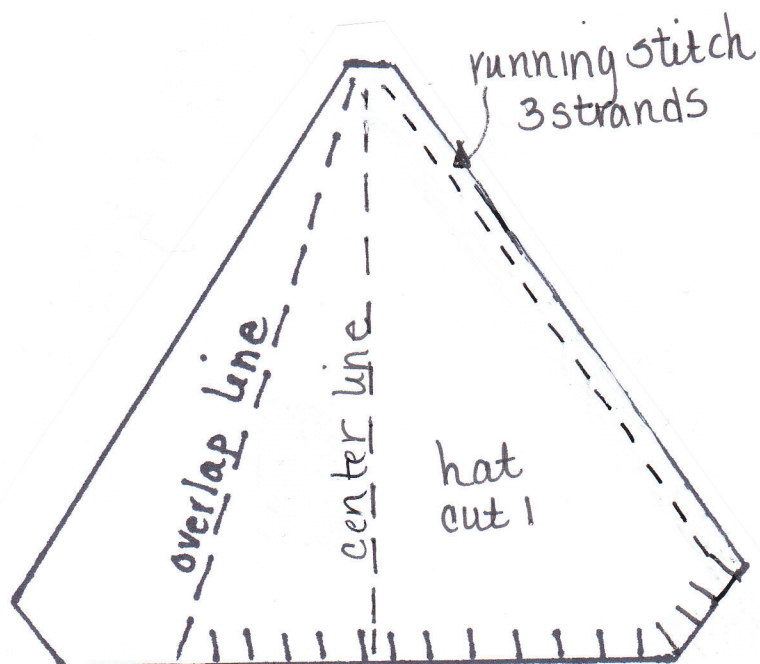 running stitch
3 strands
overlap line
center line
hat
cut 1